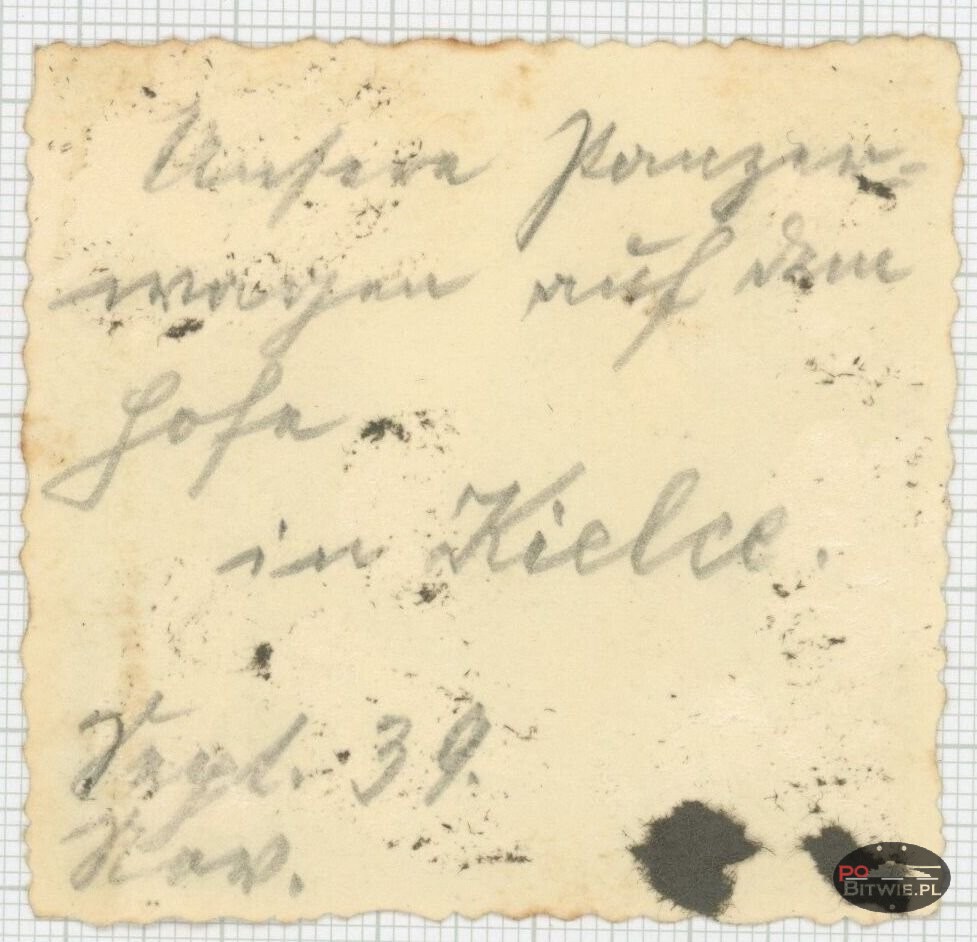 Unsere Panzer=
wagen auf dem
Hofe
in Kielce.
Sept. 39.
Nov.
PO
BITWIE.PL